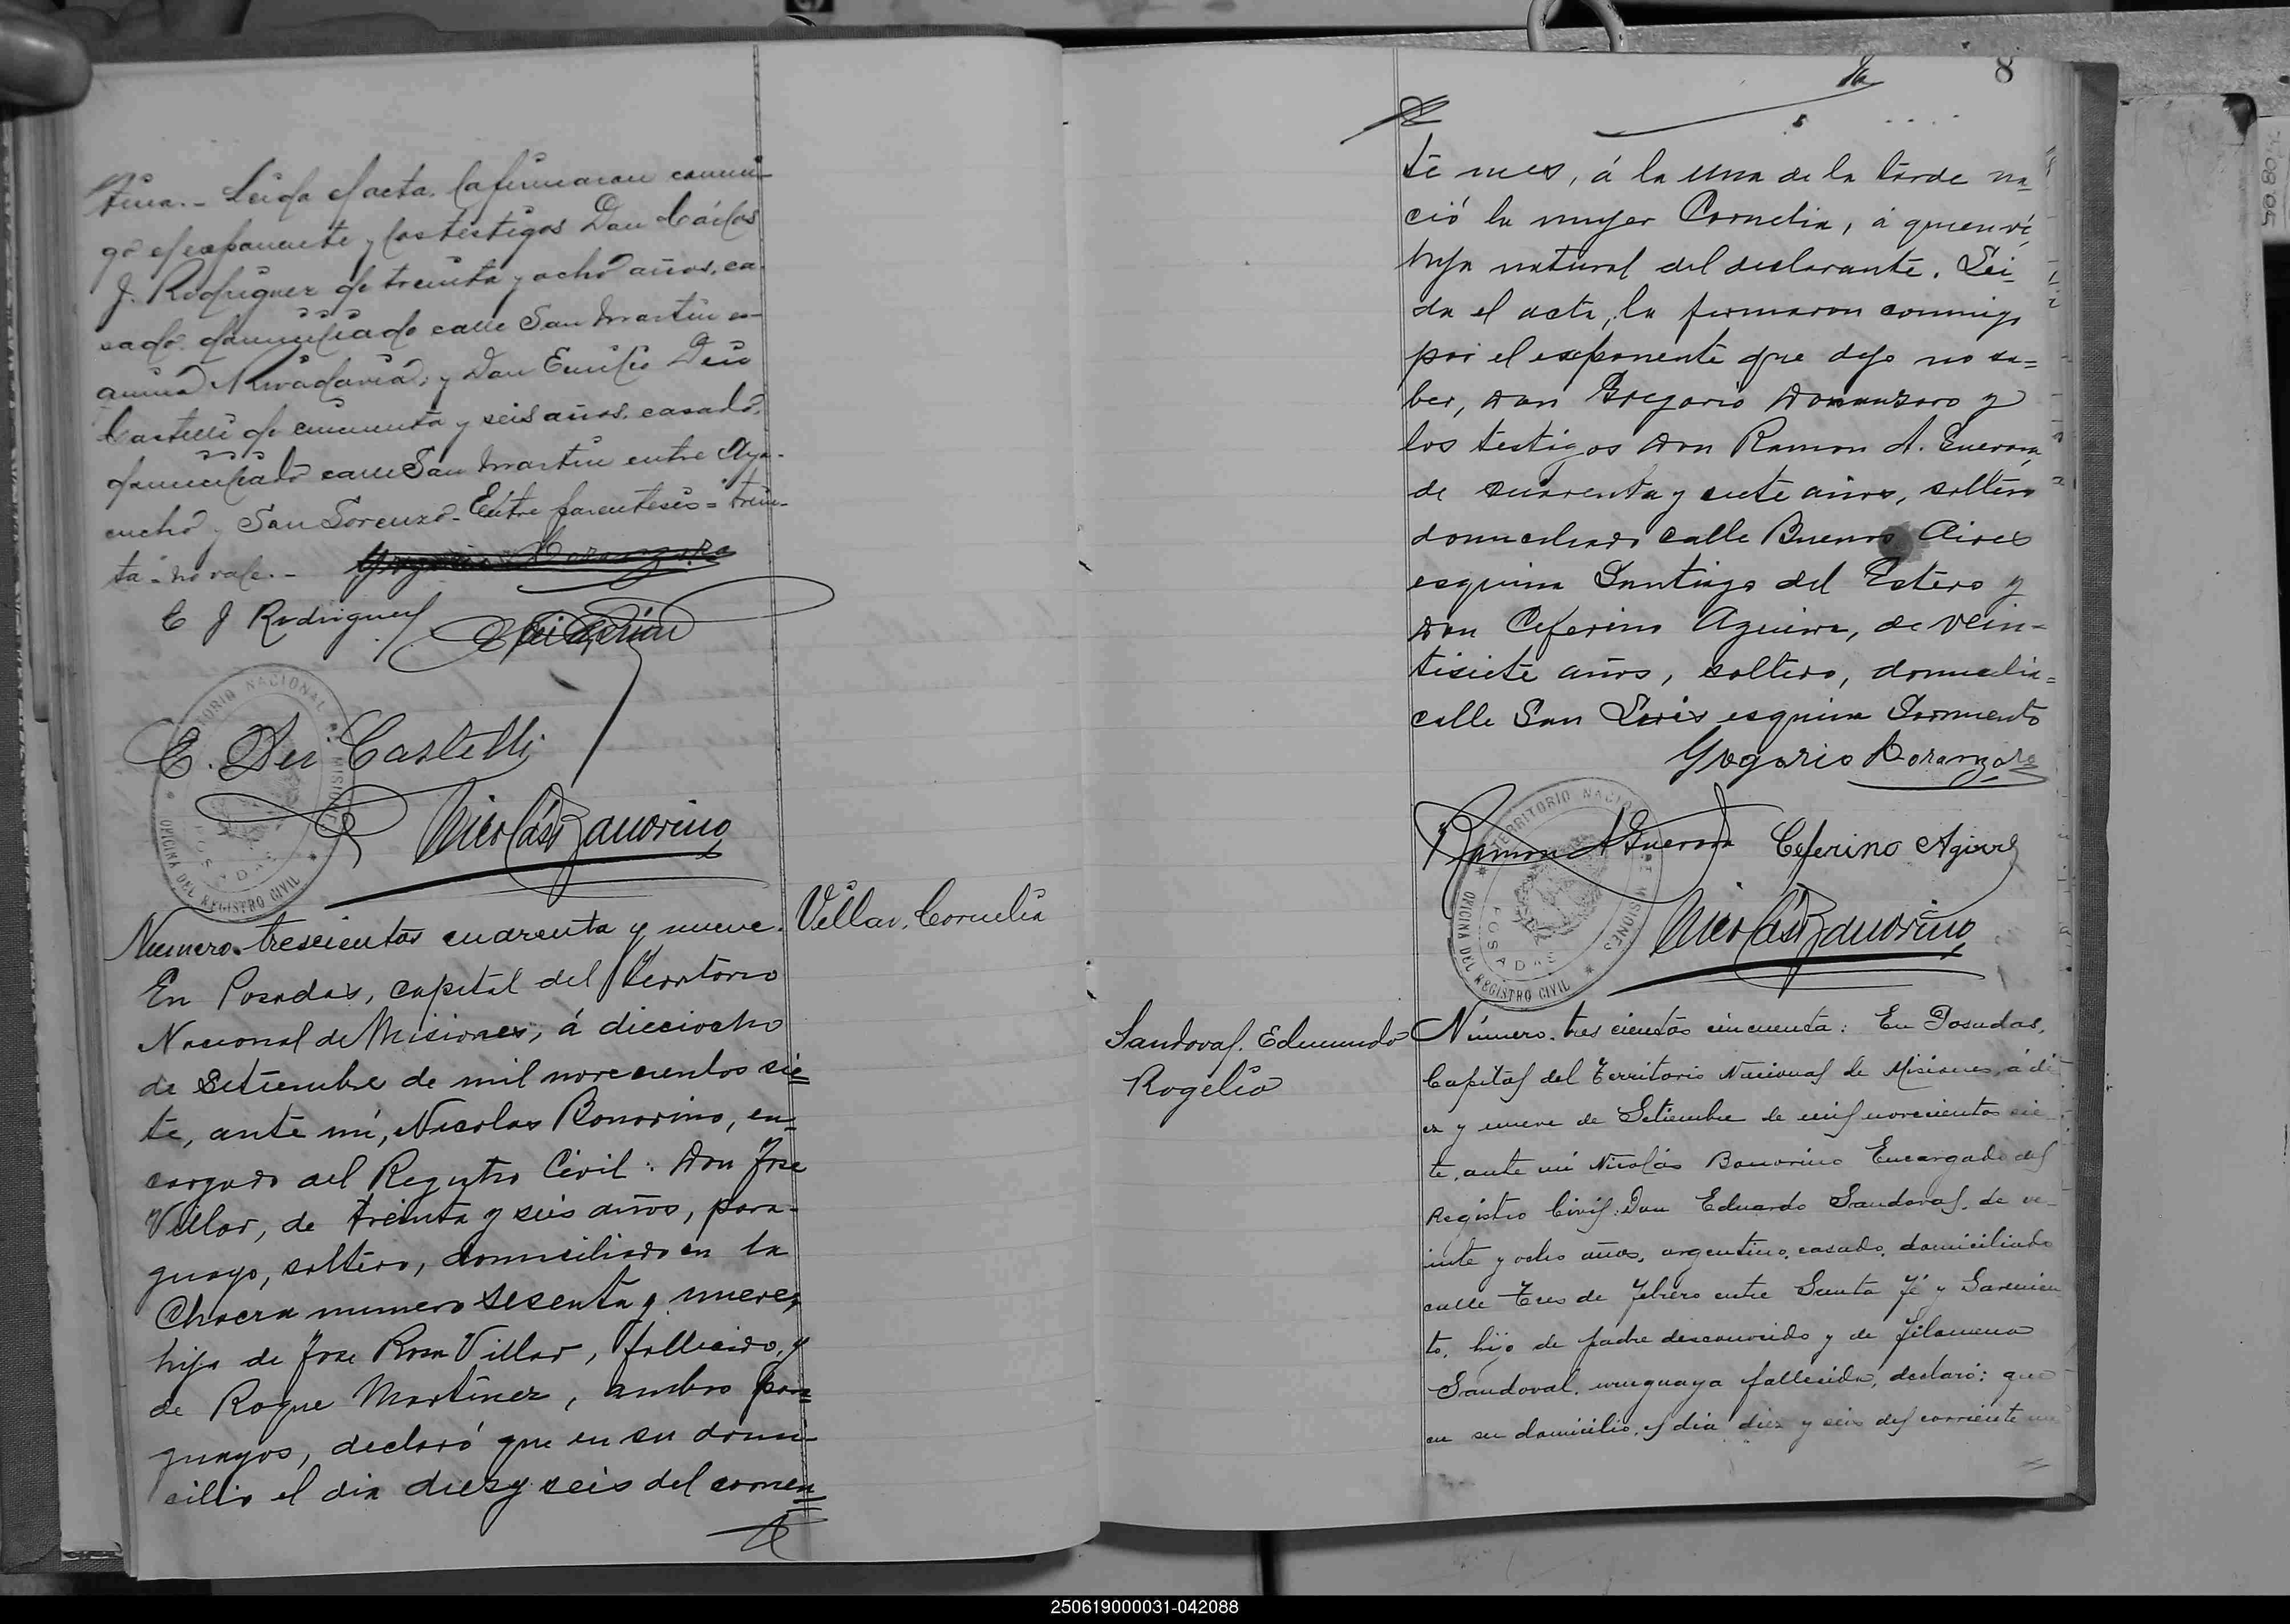 tina.- Leida el acta, la firmaron conmi-
go el exponente y los testigos Don Cárlos
J. Rodriguez de treinta y ocho años, ca-
sado, domiciliado calle San Martin es-
quina Rivadavia; y Don Emilio Dei
Castelli de cincuenta y seis años, casado,
domiciliado calle San Martin entre Aya-
cucho y San Lorenzo- Entre parentesis = trein-
ta - no vale.-
C J Rodriguez
E. Dei Castelli
Nicolás Bonorino
TERRITORIO NACIONAL DE MISIONES
OFICINA DEL REGISTRO CIVIL
POSADAS
Numero trescientos cuarenta y nueve.
Villar, Cornelia
En Posadas, capital del Territorio
Nacional de Misiones, á dieciocho
de Setiembre de mil novecientos sie=
te, ante mi, Nicolas Bonorino, en-
cargado del Registro Civil: Don Jose
Villar, de treinta y seis años, para-
guayo, soltero, domiciliado en la
Chacra numero sesenta y nueve,
hijo de Jose Rosa Villar, fallecido, y
de Roque Martinez, ambos para=
guayos, declaró que en su domi-
cilio el dia diez y seis del corrien=
8
te mes, á la una de la tarde na-
ció la mujer Cornelia, á quien ví,
hija natural del declarante. Lei-
da el acta, la firmaron conmigo
por el exponente que dijo no sa=
ber, Don Gregorio Doranzoro y
los testigos Don Ramon A.
de cuarenta y siete años, soltero
domiciliado calle Buenos Aires
esquina Santiago del Estero y
Don Ceferino Aguirre, de vein-
tisiete años, soltero, domicilia=
calle San Luis esquina Sarmiento
Gregorio Doranzoro
Ramon A Ceferino Agirre
Nicolás Bonorino
TERRITORIO NACIONAL DE MISIONES
OFICINA DEL REGISTRO CIVIL
POSADAS
Sandoval, Edmundo
Rogelio
Número trescientos cincuenta: En Posadas,
Capital del Territorio Nacional de Misiones, á di
ez y nueve de Setiembre de mil novecientos sie
te, ante mi Nicolás Bonorino Encargado del
Registro Civil: Don Eduardo Sandoval, de ve-
inte y ocho años, argentino, casado, domiciliado
calle Tres de Febrero entre Santa Fé y Sarmien
to, hijo de padre desconocido y de Filomena
Sandoval, uruguaya fallecida, declaró: que
en su domicilio, el dia diez y seis del corriente me
250619000031-042088